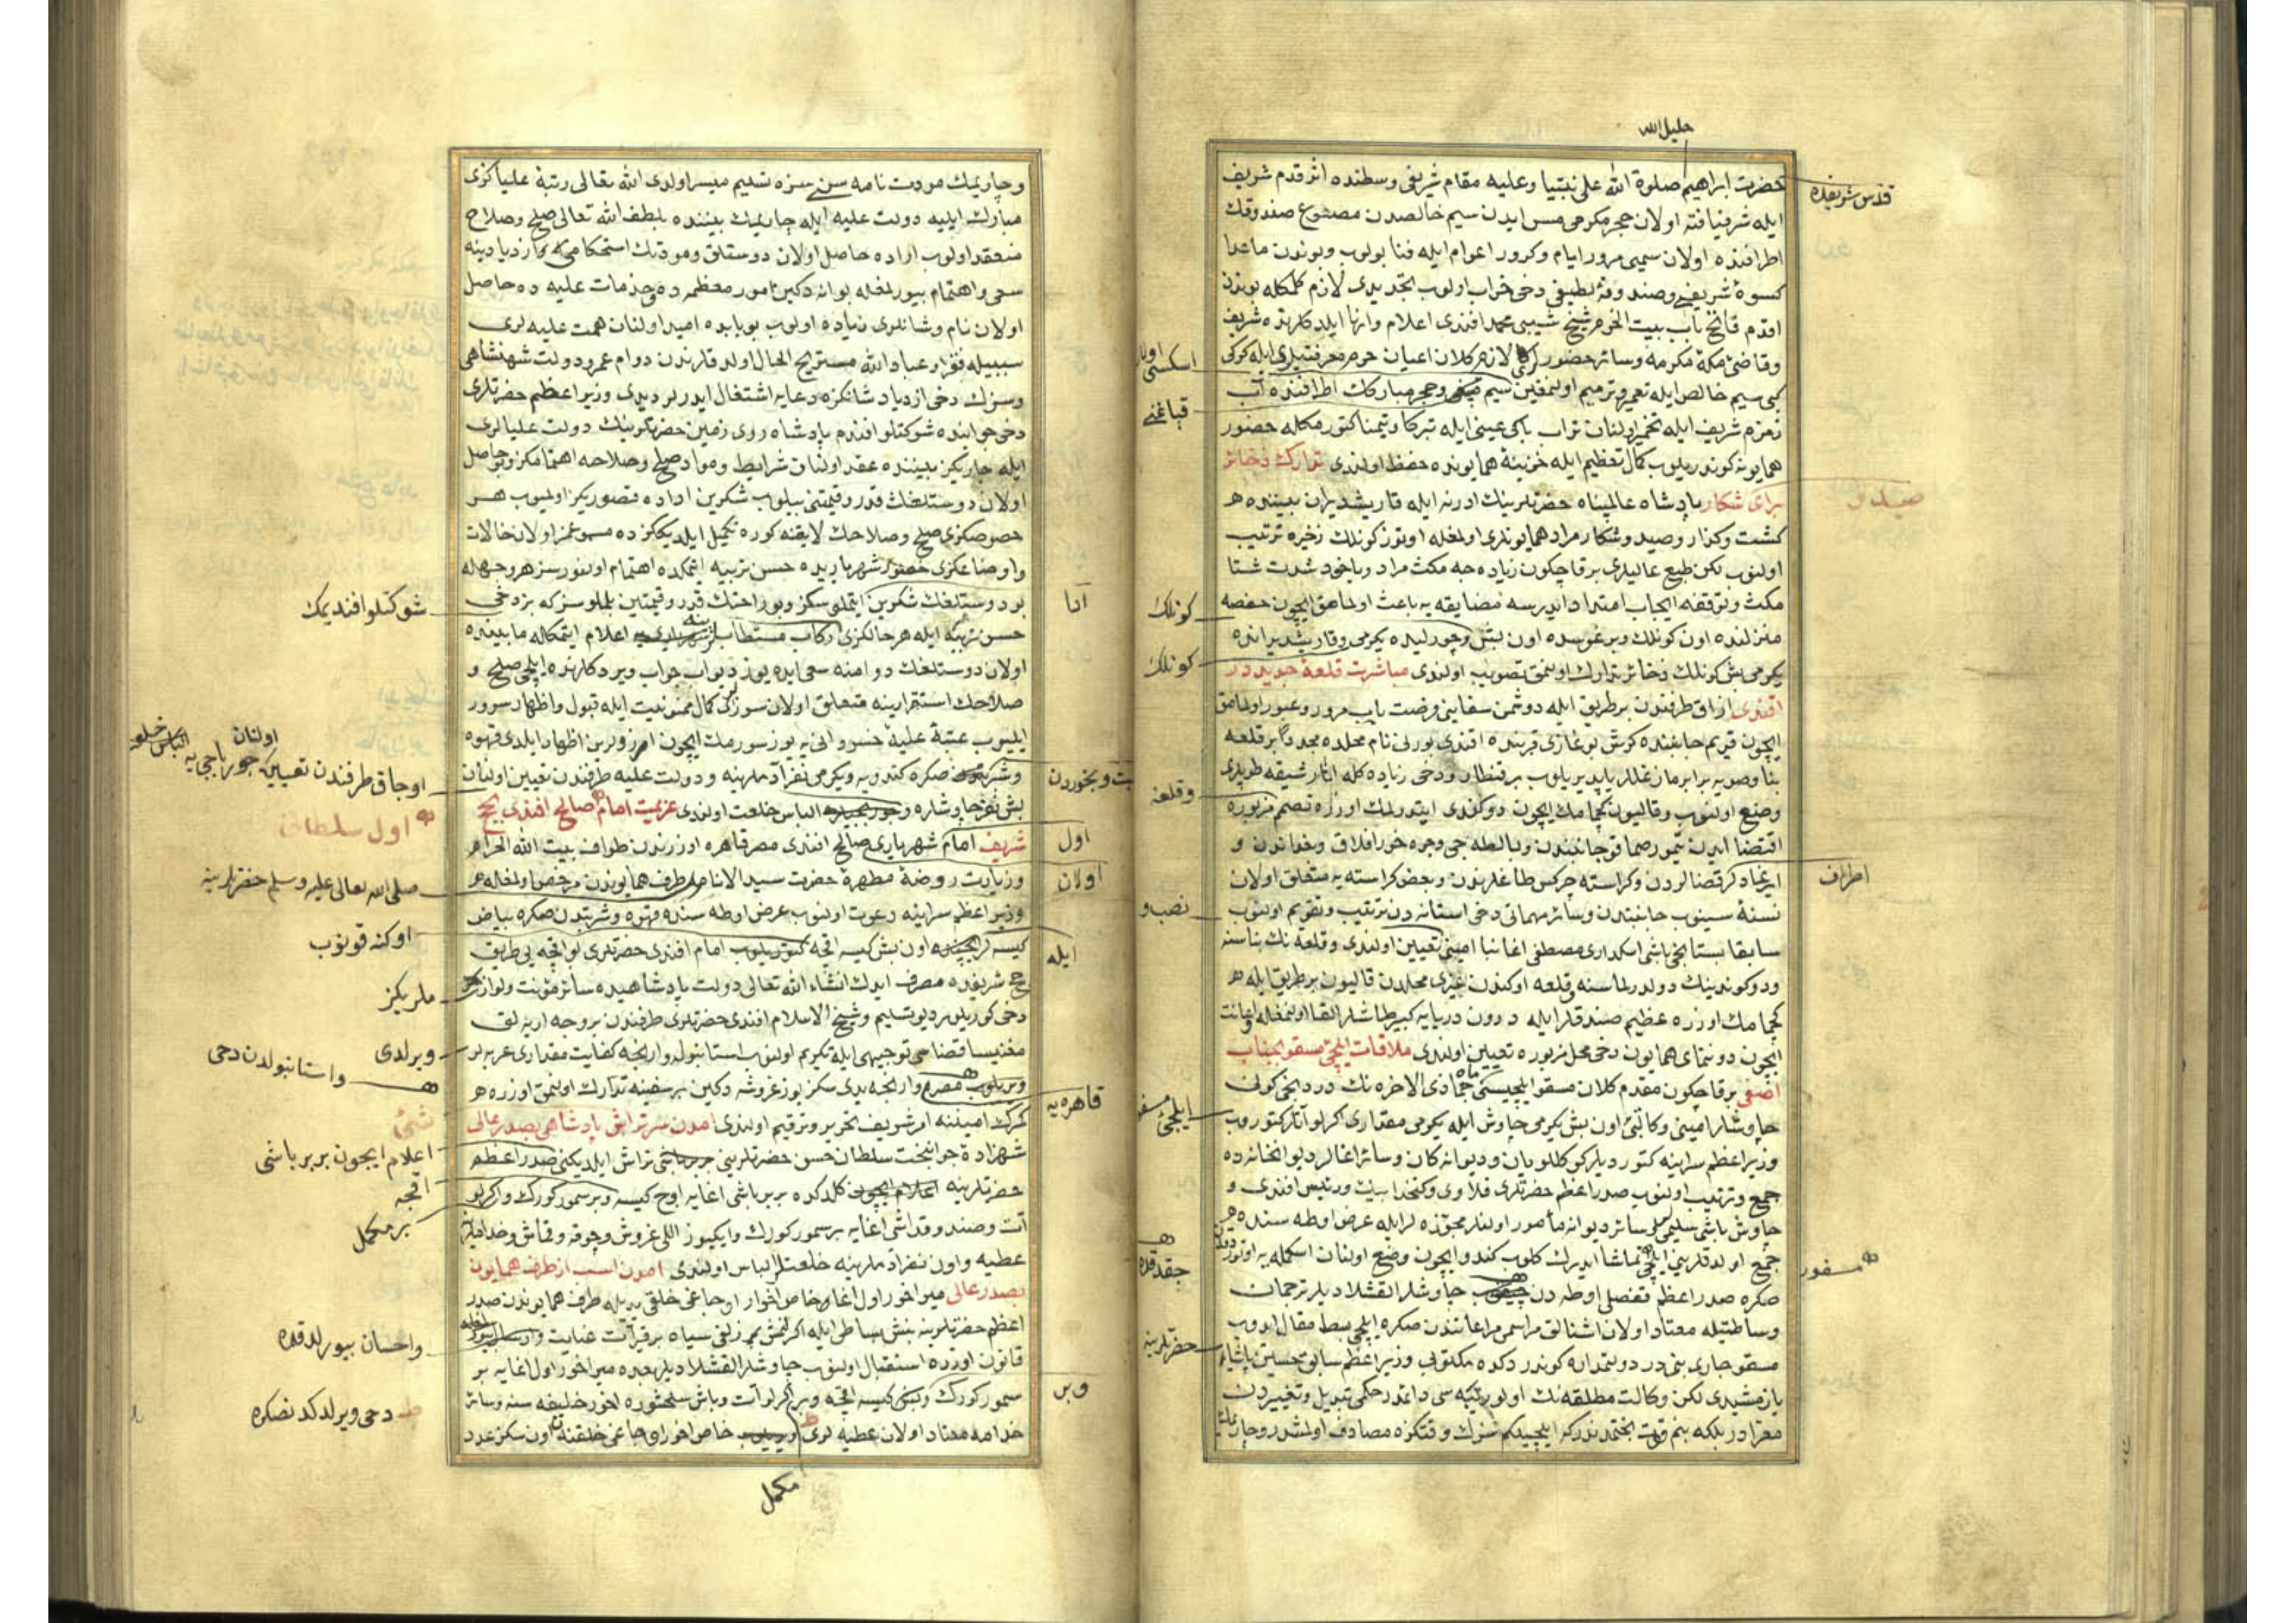 خليل الله
حضرت ابراهيم صلوة الله على نبينا وعليه مقام شريفى وسطنده اثر قدم شريف
قدس شريفده
ايله شرفيافته اولان حجر مكرمى مس ايدن سيم خالصدن مصنوع صندوقك
اطرافنده اولان سيمى مرور ايام وكرور اعوام ايله فنا بولوب وبوندن ماعدا
كسوۀ شريفى وصندوقۀ لطيفى دخى خراب اولوب تجديدى لازم كلمكله بوندن
اقدم فاتح باب بيت الحرم شيخ شيبى محمد افندى اعلام وانها ايلدكلرنده شريف
وقاضئ مكۀ مكرمه وسائر حضور لازم كلان اعيان حرم معرفتيله ايله كوكى
اسكسى
كبى سيم خالص ايله تعمير وترميم اولنمغين سيم وحجر مباركك اطرافنده آب
قباغنى
زمزم شريف ايله تخمير اولنان تراب پاكى عينى ايله تبركا وتيمنا كتورمكله حضور
همايونه كوندريلوب كمال تعظيم ايله خزينۀ همايونده حفظ اولندى تدارك ذخائر
براى شكار پادشاه عالمپناه حضرتلرينك ادرنه ايله قاريشديران بيننده
صيد و
كشت وكذار وصيد وشكار مراد همايونلرى اولمغله اوتوز كونلك ذخيره ترتيب
اولنوب لكن طبع عاليلرى برقاچكون زياده جه مكث مراد وياخود شدت شتا
مكث وتوقفه ايجاب امتداد ايدرسه مضايقه يه باعث اولمامق ايچون حفصه
كونلك
منزلنده اون كونلك وبرغوسده اون بش وچورليده يكرمى وقاريشديرانده
كونلك
يكرمى بش كونلك ذخائر تدارك اولنمق تصويب اولندى مباشرت قلعۀ جديد در
افندى ازاق طرفندن بر طريق ايله دوشمن سفاينى فرصت ياب مرور وعبور اولمامق
ايچون قريم جانبنده كرش بوغازى قربنده افندى بورنى نام محلده مجددا بر قلعه
وقلعه
وضع اولنوب وقاليون كچمامك ايچون دوكندى ايتدرلمك اوزره تصميم مزبوره
اقتضا ايدن تيمور صماقوجانبندن وبالطه جى وجره خور افلاق وبغداندن و
اطراف
ايرغاد كرقضالردن وكراسته چركس طاغلرندن وبعض كراسته يه متعلق اولان
نسنۀ سينوب جانبندن وسائر مهماتى دخى استانه دن ترتيب وتقويم اولنوب
نصب و
سابقا بستانجى باشى اسكدارى مصطفى اغا بنا امينى تعيين اولندى وقلعه نك بناسنه
ودوكوندينك دولدرلماسنه قلعه اوكندن غيرى محلدن قاليون بر طريق ايله
كچمامك اوزره عظيم صندقلر ايله درون دريايه كبير طاشلر القا اولنمغله اعانت
ايچون دونماى همايون دخى محل مزبوره تعيين اولندى ملاقات ايلچئ مسقو بجناب
اصفى برقاچكون مقدم كلان مسقو ايلچيسى جماذى الاخره نك دردنجى كونى
ايلچئ مسقو
چاوشلر امينى وكاتبى اون بش يكرمى چاوش ايله يكرمى مقدارى اكرلو آتلر كتوروب
وزير اعظم سراينه كتورديلر كوكللويان وديوانه كان وسائر اغالر ديوانخانه ده
جمع وترتيب اولنوب صدر اعظم حضرتلرى فلاوى وكتخدا بيك ورئيس افندى و
چاوش باشى سليمى سائر ديوانه مأمور اولنلر مجوزه لر ايله عرض اوطه سنده
جمع اولدقلرينى ايلچى تماشا ايدرك كلوب كندو ايچون وضع اولنان اسكمله يه اوتوردقدن
چقدقده
مسفور
صكره صدر اعظم قفصلى اوطه دن چاوشلر القشلاديلر ترجمان
وساطتيله معتاد اولان اشنالق مراسمى مراعاتندن صكره ايلچى بسط مقال ايدوب
حضرتلرينه
مسقو چارى بنى در دولتمداره كوندردكده مكتوبى وزير اعظم سابق حسين پاشايه
يازمشيدى لكن وكالت مطلقه نك اولو رتبه سى داعدر حكمى تبديل وتغييردن
معرادر بلكه بنم قوت بختمدندركه ايلچيلكم سزك وقتكزه مصادف اولمشدر وچاريمك
وچاريمك مودت نامه سنى سزه تسليم ميسر اولدى الله تعالى رتبۀ علياكزى
مبارك ايليه دولت عليه ايله چاريمك بيننده بلطف الله تعالى صلح وصلاح
منعقد اولوب اراده حاصل اولان دوستلق ومودتك استحكامى وازديادينه
سعى واهتمام بيورلمغله بوانه دكين امور معظمه ده وخدمات عليه ده حاصل
اولان نام وشانلرى زياده اولوب بو بابده اميد اولنان همت عليه لرى
سببيله فقرا وعباد الله مستريح الحال اولدقلرندن دوام عمر ودولت شهنشاهى
وسزك دخى ازدياد شانكزه دعايه اشتغال ايدرلر ديدى وزير اعظم حضرتلرى
دخى جوابنده شوكتلو افندم پادشاه روى زمين حضرتلرينك دولت عليالرى
ايله چاريكز بيننده عقد اولنان شرايط ومواد صلح وصلاحه اهتمامكز وبو حاصل
اولان دوستلغك قدر وقيمتنى بيلوب شكرين اداده قصوريكز اولميوب هر
خصوصكزى صلح وصلاحك لايقنه كوره تكميل ايلديككز ده مسموعمز اولان حالات
واوضاعكزى حضور شهرياريده حسن تربيه ايتمكده اهتمام اولنور سز هر وجهله
بو دوستلغك شكرين ايتملوسكز وبو راحتك قدر وقيمتين بلملوسز كه بز دخى
شوكتلو افنديمك
حسن تربيه ايله هر حالكزى ركاب مستطابلرينه اعلام ايتمكله مابينده
اولان دوستلغك دوامنه سعى ايده يوز ديو جواب ويردكلرنده ايلچى صلح و
صلاحك استقرارينه متعلق اولان سوزلرى كمال ممنونيت ايله قبول واظهار سرور
ايليوب عتبۀ عليۀ خسروانى يه يوز سورمك ايچون امر زولرين اظهار ايلدى قهوه
وشربتدن صكره كندويه ويكرمى نفر آدملرينه ودولت عليه طرفندن تعيين اولنان
اوجاق طرفندن تعيين اولنان چورباجى يه الباس خلعت
بش نفر چاوشلره الباس خلعت اولندى عزيمت امام صالح افندى بحج
اول سلطانى
شريف امام شهريارى صالح افندى مصر قاهره اوزرندن طواف بيت الله الحرام
اول
وزيارت روضۀ مطهرۀ حضرت سيد الانام طرف همايوندن مرخص اولمغله
اولان
صلى الله تعالى عليه وسلم حضرتلرينه
وزير اعظم سراينه دعوت اولنوب عرض اوطه سنده قهوه وشربتدن صكره بياض
كيسه لر اون بش كيسه اقچه امام افندى حضرتلرى بو اقچه يى طريق
ايله
اوكنه قونوب
حج شريفده مصرف ايدك انشاء الله تعالى دولت پادشاهيده سائر مؤنت ولوازم
ملريكز
دخى كوريلور ديو تسليم وشيخ الاسلام افندى حضرتلرى طرفندن بر وجه ارپه لق
مغنيسا قضاسى توجيهى ايله تكريم اولنوب استانبولدن وارنجه كفايت مقدارى عربه لر
ويرلدى
واستانبولدن دخى
وارنجه يدى سكز يوز غروشه دكين بر سفينه تدارك اولنمق اوزره
قاهره يه
كمرك امينينه امر شريف تحرير وترقيم اولندى امدن سرتراش پادشاهى بصدر عالى
شهزادۀ جوانبخت سلطان حسن حضرتلرينى تراش ايلديكنى صدر اعظم
اعلام ايچون بربر باشى
حضرتلرينه كلدكده بربر باشى اغايه اوچ كيسه وبر سمور كورك واكرلو
اقچه
بر مكمل
آت وصندوقداشى اغايه بر سمور كورك وايكيوز اللى غروش وچوقه وقماش وخدامه
عطيه واون نفر آدملرينه خلعتلر الباس اولندى امدن اسب از طرف همايون
بصدر عالى ميراخور اول اغا خاص اخوار اوجاغى خلقى ايله طرف همايوندن صدر
اعظم حضرتلرينه بنش بساطى ايله اكرلنمش زلفى سياه بر قير آت عنايت
واحسان بيورلدقده
قانون اوزره استقبال اولنوب چاوشلر القشلاديلر بعده ميراخور اول اغايه بر
سمور كورك وبش كيسه اقچه وبر اكرلو آت وباش سلحشوره اخور خليفه سنه وسائر
وبر
خدامه معتاد اولان عطيه لرى خاص اخور اوجاغى خلقنه اون سكز عدد
دخى ويرلدكدنصكره
مكمل